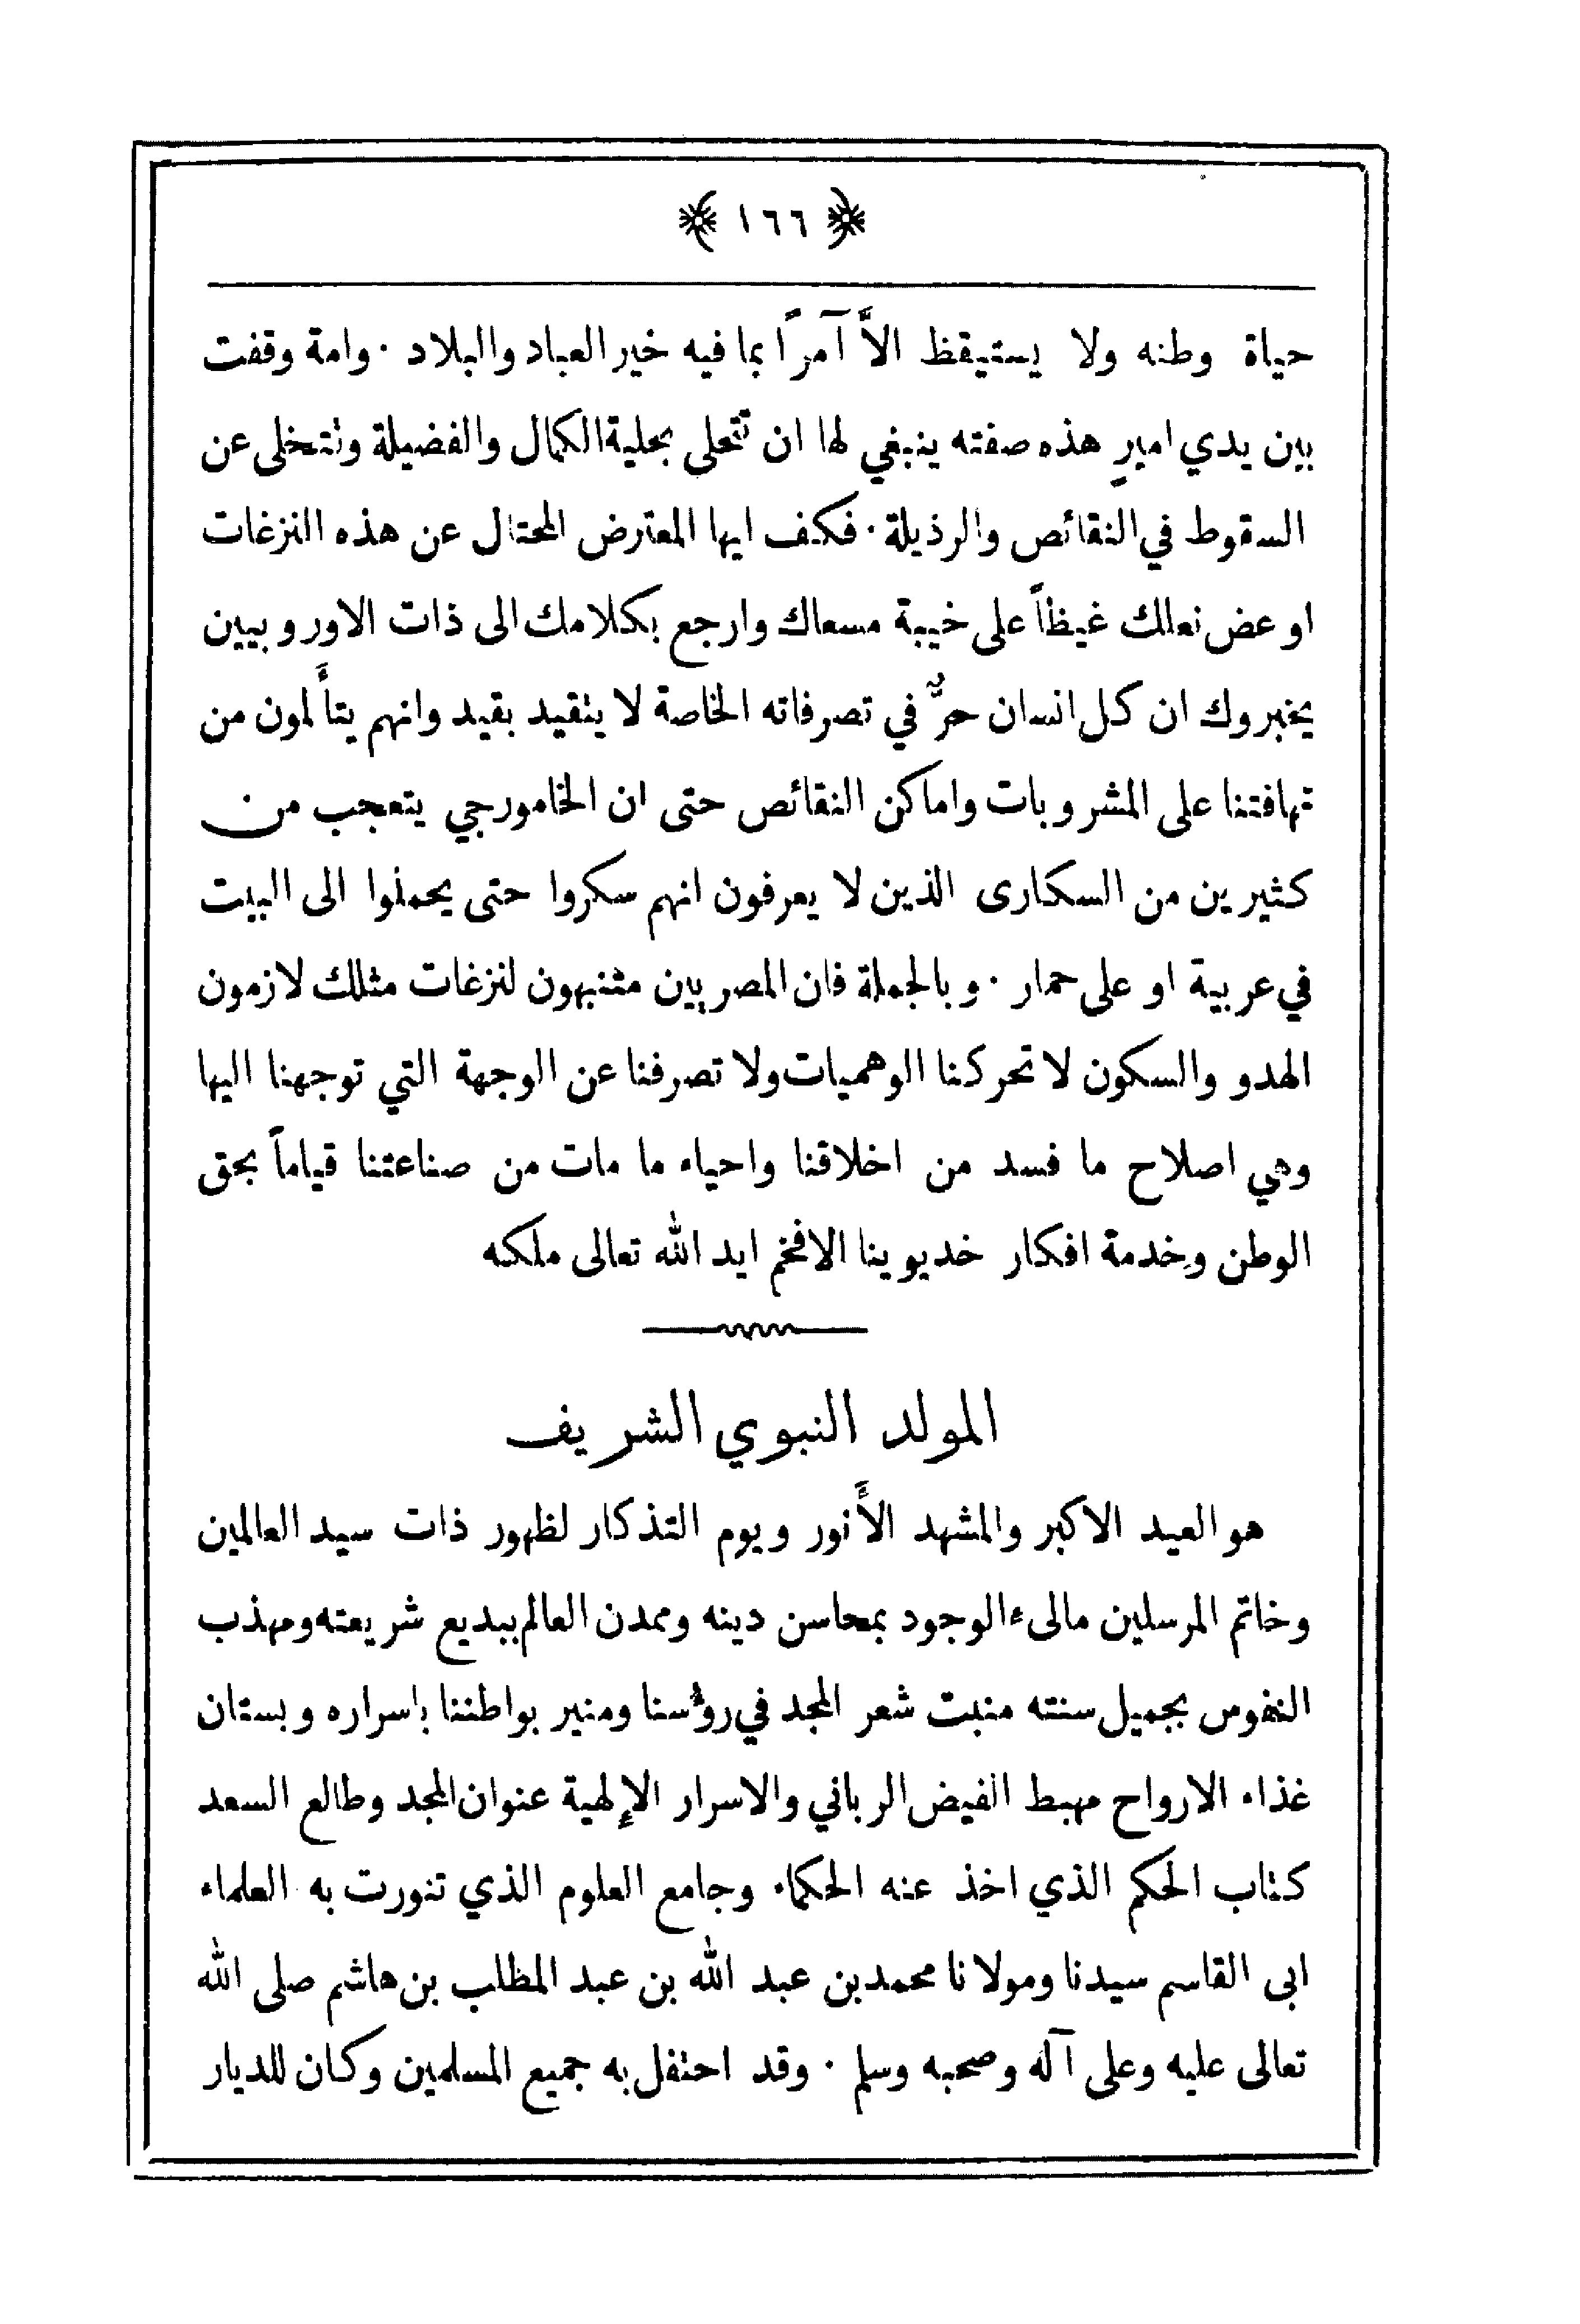 ﴿ ١٦٦ ﴾
حياة وطنه ولا يستيقظ الاَّ آمراً بما فيه خير العباد والبلاد ٠ وامة وقفت
بين يدي اميرٍ هذه صفته ينبغي لها ان تتحلى بحلية الكمال والفضيلة وتتخلى عن
السقوط في النقائص والرذيلة ٠ فكف ايها المعترض المحتال عن هذه النزغات
او عض نعالك غيظاً على خيبة مسعاك وارجع بكلامك الى ذات الاوروبيين
يخبروك ان كل انسان حرٌّ في تصرفاته الخاصة لا يتقيد بقيد وانهم يتأَلمون من
تهافتنا على المشروبات واماكن النقائص حتى ان الخامورجي يتعجب من
كثيرين من السكارى الذين لا يعرفون انهم سكروا حتى يحملوا الى البيت
في عربية او على حمار ٠ وبالجملة فان المصريين متنبهون لنزغات مثلك لازمون
الهدو والسكون لا تحركنا الوهميات ولا تصرفنا عن الوجهة التي توجهنا اليها
وهي اصلاح ما فسد من اخلاقنا واحياء ما مات من صناعتنا قياماً بحق
الوطن وخدمة افكار خديوينا الافخم ايد الله تعالى ملكه
المولد النبوي الشريف
هو العيد الاكبر والمشهد الأَنور ويوم التذكار لظهور ذات سيد العالمين
وخاتم المرسلين مالىء الوجود بمحاسن دينه وممدن العالم ببديع شريعته ومهذب
النفوس بجميل سنته منبت شعر المجد في رؤسنا ومنير بواطننا باسراره وبستان
غذاء الارواح مهبط الفيض الرباني والاسرار الإلهية عنوان المجد وطالع السعد
كتاب الحكم الذي اخذ عنه الحكماء وجامع العلوم الذي تنورت به العلماء
ابى القاسم سيدنا ومولانا محمد بن عبد الله بن عبد المطلب بن هاشم صلى الله
تعالى عليه وعلى آله وصحبه وسلم ٠ وقد احتفل به جميع المسلمين وكان للديار